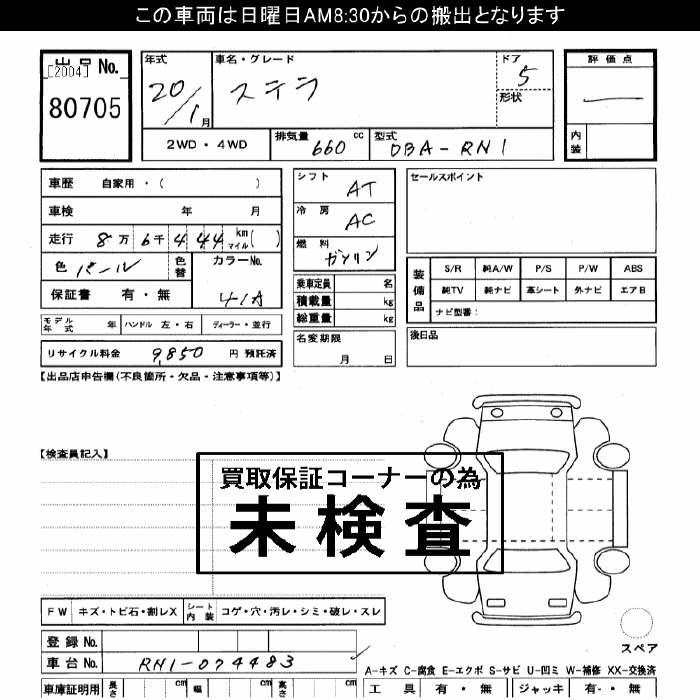 この車両は日曜日AM8:30からの搬出となります
出品 No.
[2004]
80705
年式
20/1月
車名・グレード
ステラ
ドア
5
形状
評価点
内装
2WD・4WD
排気量
660 cc
型式
DBA-RN1
車歴 自家用・( )
車検 年 月
走行 8万 6千 4 44 km マイル( )
色 パール
色替
カラーNo.
41A
保証書 有・無
モデル年式 年
ハンドル 左・右
ディーラー・並行
リサイクル料金 9,850 円 預託済
シフト AT
冷房 AC
燃料 ガソリン
乗車定員 名
積載量 kg
総重量 kg
名変期限
月 日
セールスポイント
装備品
S/R 純A/W P/S P/W ABS
純TV 純ナビ 革シート 外ナビ エアB
ナビ型番:
後日品
【出品店申告欄(不良箇所・欠品・注意事項等)】
【検査員記入】
買取保証コーナーの為
未検査
FW キズ・トビ石・割レX
シート内装 コゲ・穴・汚レ・シミ・破レ・スレ
登録No.
車台No. RN1-074483
スペア
車庫証明用 長さ cm 幅 cm 高さ cm
A-キズ C-腐食 E-エクボ S-サビ U-凹ミ W-補修 XX-交換済
工具 有・無 ジャッキ 有・無